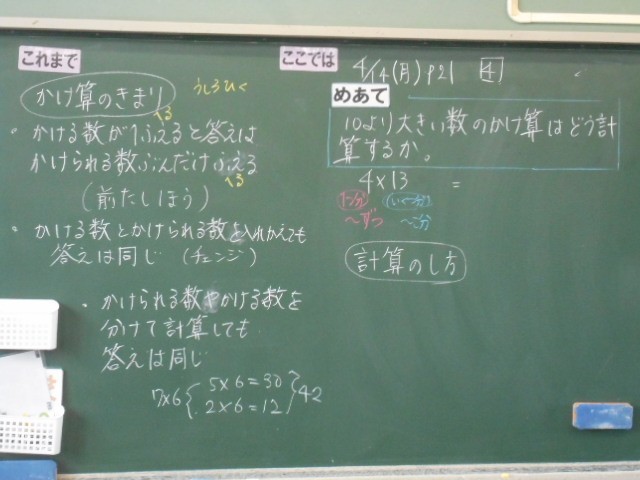 これまで
かけ算のきまり
うしろひく
へる
・かける数が1ふえると答えは
かけられる数ぶんだけふえる
へる
(前たしほう)
・かける数とかけられる数を入れかえても
答えは同じ (チェンジ)
・かけられる数やかける数を
分けて計算しても
答えは同じ
7×6 { 5×6=30
2×6=12 } 42
ここでは
4/14(月) P21 4
めあて
10より大きい数のかけ算はどう計
算するか。
4×13 =
1つ分 いくつ分
~ずつ ~こ分
計算のし方